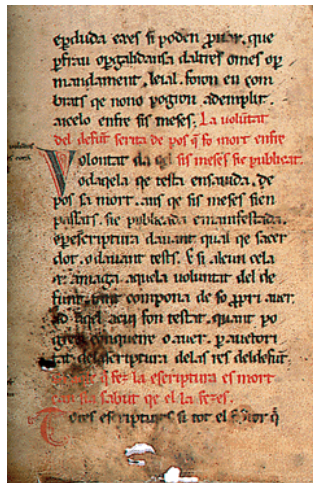 perduda eres si poden prouar que
per frau o per gabdansa daltres omes o per
mandament leial foron en com
brats qe nono pogron ademplir
aicelo enfre sis meses. La uoluntat
del defunt scrita de pos q̃ fo mort enfre
Volontat da qel sis meses sie publicat.
uodaqela qe testa ensauida. de
pos sa mort. ans qe sis meses sien
passats. sie publicada emanifestada.
per escriptura dauant qual qe sacer
dot. o dauant tests. E si alcun cela
o amaga aquela uoluntat del de
funt, compona de so propri auer.
ad aqel acui fon testat. quant po
conquerre o auer. per auctori
tat del scriptura delas res deldefunt
q̃ fez la escriptura es mort
sabut qe el la fezes.
Totes escriptures si tot el q̃